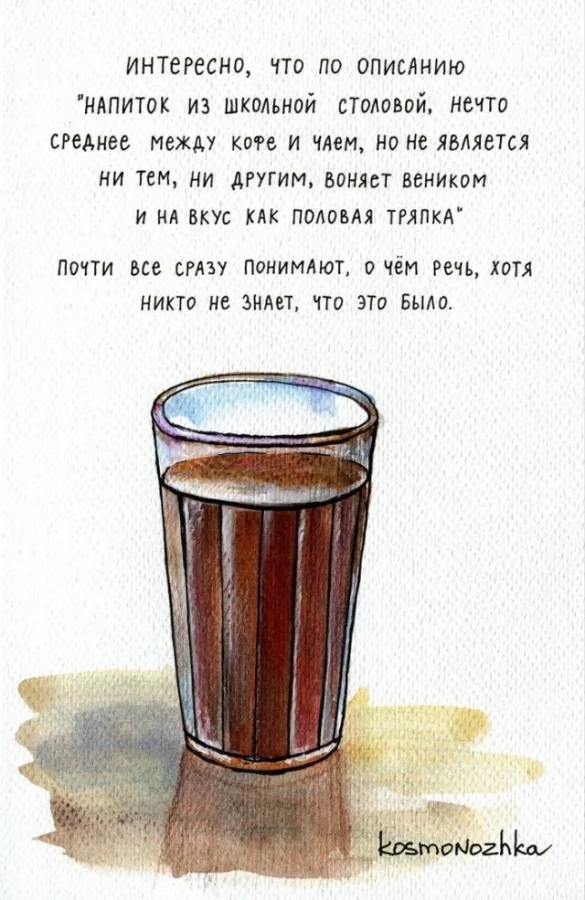 интересно, что по описанию
"напиток из школьной столовой, нечто
среднее между кофе и чаем, но не является
ни тем, ни другим, воняет веником
и на вкус как половая тряпка"
Почти все сразу понимают, о чём речь, хотя
никто не знает, что это было.
kosmonozhka